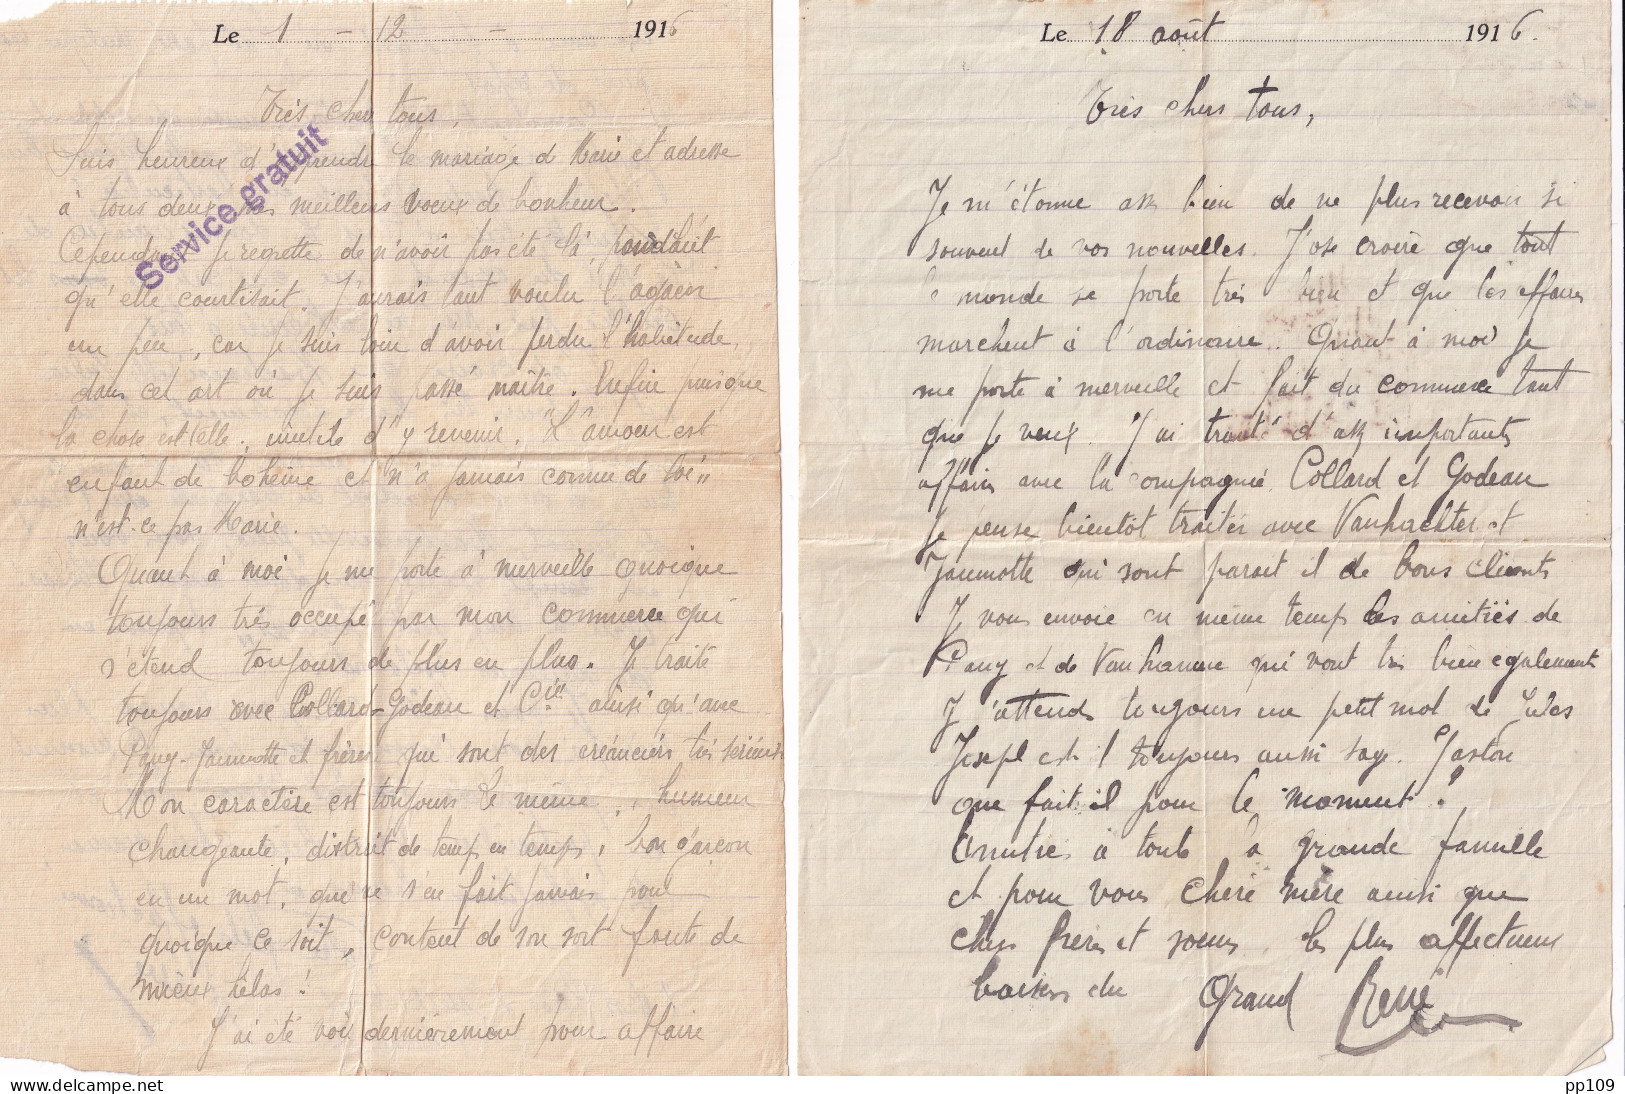 Le 1 - 12 - 1916
Très chers tous,
Suis heureux d'apprendre le mariage de Marie et adresse
à tous deux mes meilleurs voeux de bonheur.
Cependant je regrette de n'avoir pas été là, pendant
qu'elle courtisait. J'aurais tant voulu l'agacer
un peu, car je suis loin d'avoir perdu l'habitude,
dans cet art où je suis passé maître. Enfin puisque
la chose est telle, inutile d'y revenir. "L'amour est
enfant de bohème et n'a jamais connu de loi"
n'est-ce pas Marie.
Quant à moi je me porte à merveille quoique
toujours très occupé par mon commerce qui
s'étend toujours de plus en plus. Je traite
toujours avec Collard-Godeau et Cie ainsi qu'avec
Pauy-Jaumotte et frères qui sont des créanciers très sérieux
Mon caractère est toujours le même, humeur
changeante, distrait de temps en temps, bon garçon
en un mot, qui ne s'en fait jamais pour
quoique ce soit, content de son sort faute de
mieux hélas!
J'ai été voir dernièrement pour affaire
Service gratuit
Le 18 août 1916.
Très chers tous,
Je m'étonne assz bien de ne plus recevoir si
souvent de vos nouvelles. J'ose croire que tout
le monde se porte très bien et que les affaires
marchent à l'ordinaire. Quant à moi je
me porte à merveille et fait du commerce tant
que je veux. J'ai traité d'assz importants
affaires avec la compagnie Collard et Godeau
Je pense bientôt traiter avec Vanhachter et
Jaumotte qui sont parait il de bons clients
Je vous envoie en même temps les amitiés de
Pauy et de Vanhamme qui vont très bien également
J'attends toujours un petit mot de Jules
Joseph est-il toujours aussi sage. Gaston
que fait il pour le moment?
Amitiés à toute la grande famille
et pour vous chère mère ainsi que
chers frères et soeurs, les plus affectueux
baisers du Grand René
pp109